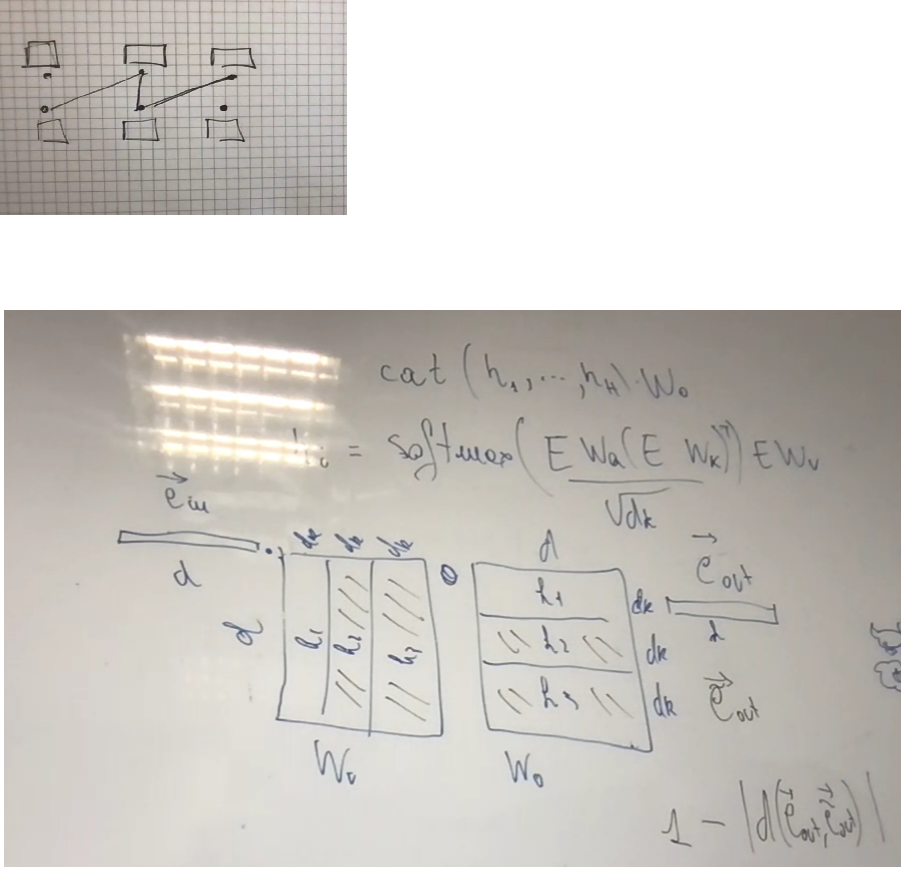 cat (h₁, ..., h_H) · W₀
hᵢ = softmax( E W_Q (E W_K)ᵀ / √dk ) E W_v
e⃗ in
d
dk dk dk
d
h₁ h₂ h₃
W_v
d
h₁ dk
h₂ dk
h₃ dk
W₀
e⃗ out
d
e⃗ out
1 - |d(e⃗ out, e⃗ out)|